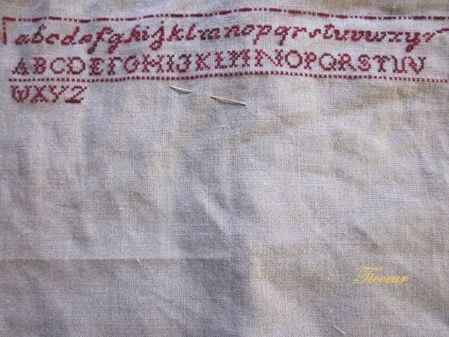 abcdefghijklmnopqrstuvwxyz
ABCDEFGHIJKLMNOPQRSTUV
WXYZ
Ticoeur